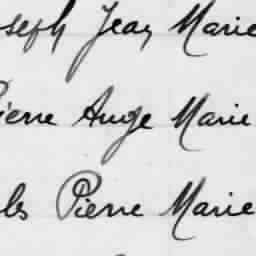 oseph Jean Marie
Pierre Ange Marie
les Pierre Marie